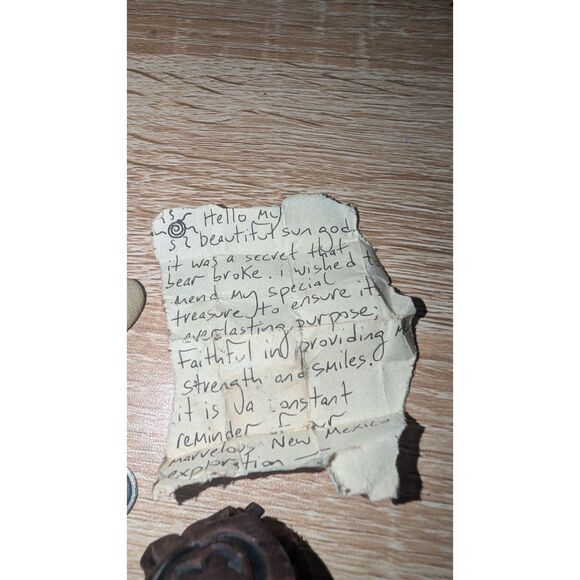 Hello My
beautiful sun god
it was a secret that
bear broke. i wished
mend my special
treasure to ensure it
everlasting purpose;
Faithful in providing
strength and smiles.
it is a constant
reminder
marvelous New Mexico
exploration —